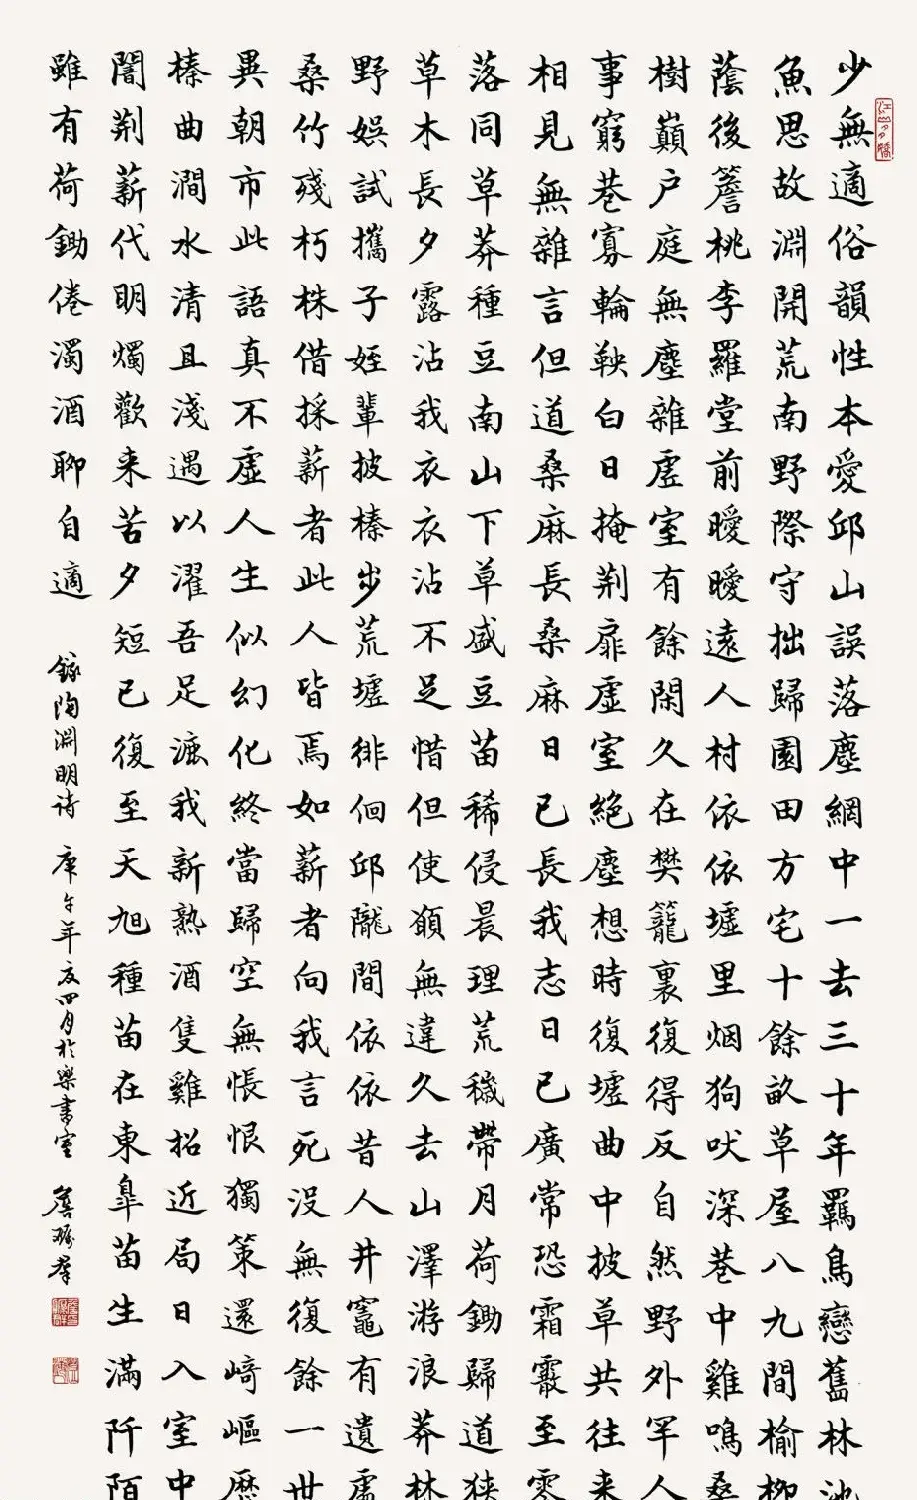 江山多嬌
少無適俗韻性本愛邱山誤落塵網中一去三十年羈鳥戀舊林池
魚思故淵開荒南野際守拙歸園田方宅十餘畝草屋八九間榆柳
蔭後簷桃李羅堂前曖曖遠人村依依墟里烟狗吠深巷中雞鳴桑
樹巔户庭無塵雜虛室有餘閑久在樊籠裏復得反自然野外罕人
事窮巷寡輪鞅白日掩荆扉虛室絕塵想時復墟曲中披草共往来
相見無雜言但道桑麻長桑麻日已長我志日已廣常恐霜霰至零
落同草莽種豆南山下草盛豆苗稀侵晨理荒穢帶月荷鋤歸道狹
草木長夕露沾我衣衣沾不足惜但使願無違久去山澤游浪莽林
野娛試攜子姪輩披榛步荒墟徘徊邱隴間依依昔人井竈有遺處
桑竹殘朽株借採薪者此人皆焉如薪者向我言死没無復餘一世
異朝市此語真不虛人生似幻化終當歸空無悵恨獨策還崎嶇歷
榛曲澗水清且淺遇以濯吾足漉我新熟酒隻雞招近局日入室中
闇荆薪代明燭歡来苦夕短已復至天旭種苗在東皐苗生滿阡陌
雖有荷鋤倦濁酒聊自適
錄陶淵明诗 庚午年四月於樂書室